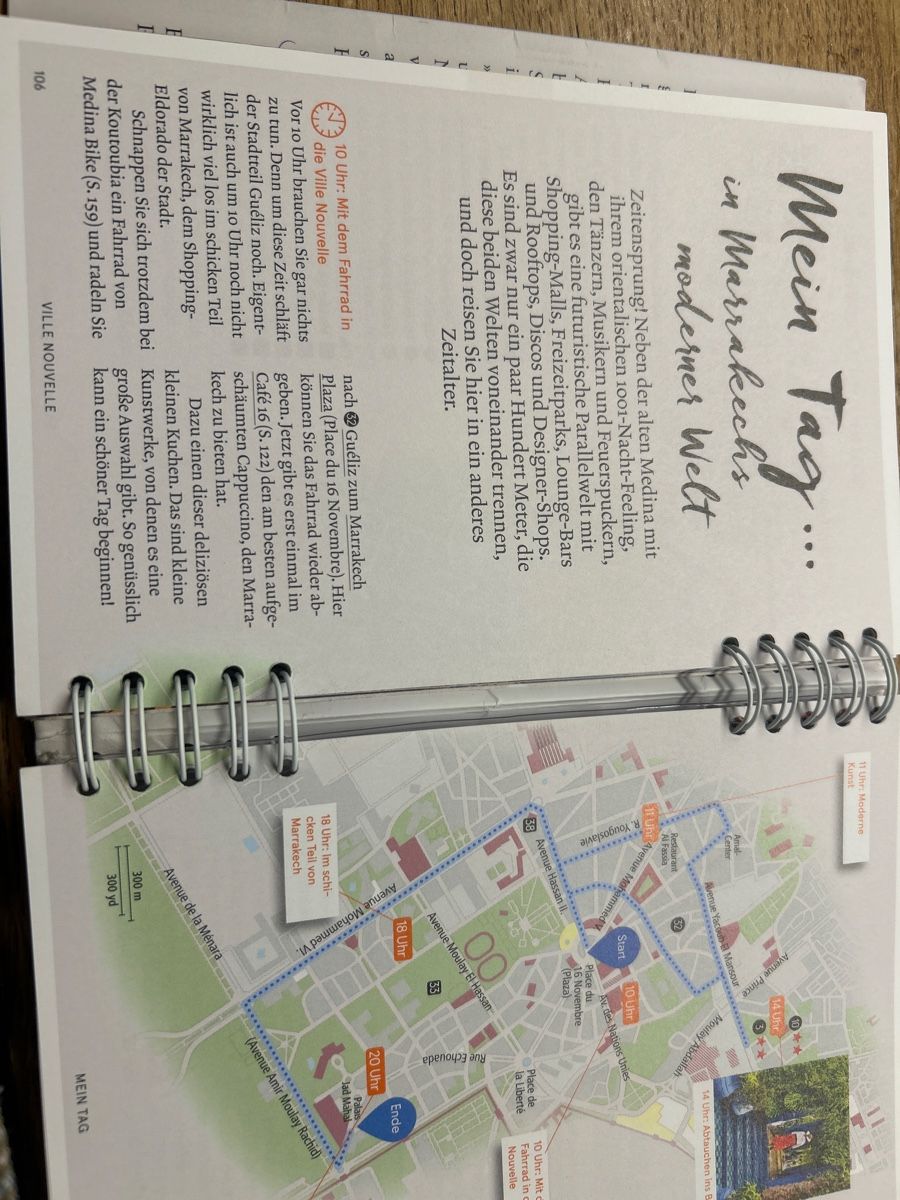 Mein Tag ...
in Marrakechs
moderner Welt
Zeitensprung! Neben der alten Medina mit
ihrem orientalischen 1001-Nacht-Feeling,
den Tänzern, Musikern und Feuerspuckern,
gibt es eine futuristische Parallelwelt mit
Shopping-Malls, Freizeitparks, Lounge-Bars
und Rooftops, Discos und Designer-Shops.
Es sind zwar nur ein paar Hundert Meter, die
diese beiden Welten voneinander trennen,
und doch reisen Sie hier in ein anderes
Zeitalter.
10 Uhr: Mit dem Fahrrad in
die Ville Nouvelle
Vor 10 Uhr brauchen Sie gar nichts
zu tun. Denn um diese Zeit schläft
der Stadtteil Guéliz noch. Eigent-
lich ist auch um 10 Uhr noch nicht
wirklich viel los im schicken Teil
von Marrakech, dem Shopping-
Eldorado der Stadt.
Schnappen Sie sich trotzdem bei
der Koutoubia ein Fahrrad von
Medina Bike (S. 159) und radeln Sie
nach 32 Guéliz zum Marrakech
Plaza (Place du 16 Novembre). Hier
können Sie das Fahrrad wieder ab-
geben. Jetzt gibt es erst einmal im
Café 16 (S. 122) den am besten aufge-
schäumten Cappuccino, den Marra-
kech zu bieten hat.
Dazu einen dieser deliziösen
kleinen Kuchen. Das sind kleine
Kunstwerke, von denen es eine
große Auswahl gibt. So genüsslich
kann ein schöner Tag beginnen!
106
VILLE NOUVELLE
11 Uhr: Moderne
Kunst
Amal-
Center
Restaurant
Al Fassia
11 Uhr
R. Yougoslavie
Avenue Mohammed V.
Avenue Yacoub el Mansour
Avenue Prince
Moulay Abdallah
14 Uhr
10
3
32
38
Avenue Hassan II.
Start
Place du
16 Novembre
(Plaza)
10 Uhr
Av. des Nations Unies
14 Uhr: Abtauchen ins
18 Uhr: Im schi-
cken Teil von
Marrakech
Avenue Mohammed VI.
18 Uhr
Avenue Moulay El Hassan
33
Rue Echouada
Place de
la Liberté
10 Uhr: Mit
Fahrrad in
Nouvelle
Avenue de la Ménara
20 Uhr
Palais
Jad Mahal
Ende
(Avenue Amir Moulay Rachid)
300 m
300 yd
MEIN TAG